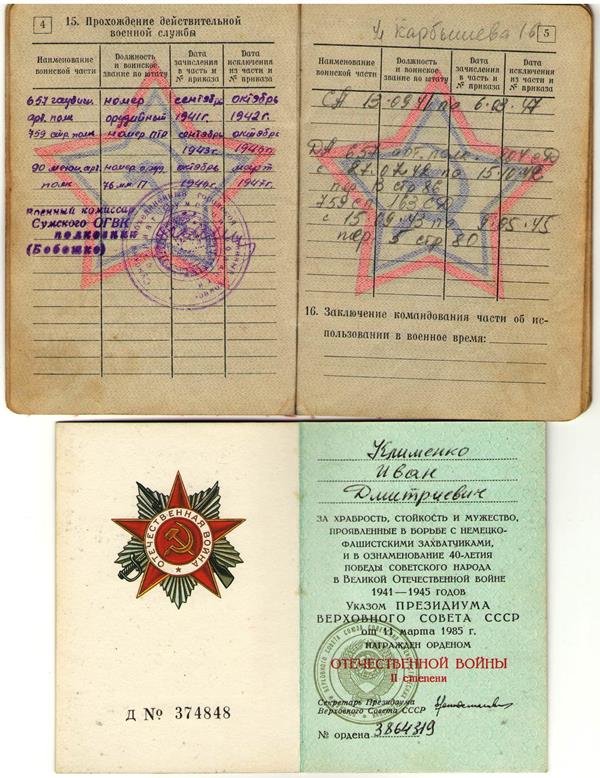 4
15. Прохождение действительной
военной службы
Наименование воинской части
Должность и воинское звание по штату
Дата зачисления в часть и № приказа
Дата исключения из части и № приказа
657 гаубич. номер сентябрь октябрь
арт. полк орудийный 1941г. 1942г.
759 стр. полк номер ПТР сентябрь октябрь
1943г.
90 арт. номер октябрь март
полк 76 мм 1946г. 1947г.
Военный комиссар
Сумского ОГВК
полковник
(Бобошко)
Карбышева 16
5
Наименование воинской части
Должность и воинское звание по штату
Дата зачисления в часть и № приказа
Дата исключения из части и № приказа
СА 13.09.41 по 6.03.47
ДА 657 арт. полк.
по 15.10.42
стр 86
759 сп 163 сд
с 15.09.43 по 9.05.45
пер. 5 стр 80
16. Заключение командования части об ис-
пользовании в военное время:
ОТЕЧЕСТВЕННАЯ ВОЙНА
Д № 374848
Клименко
Иван
Дмитриевич
ЗА ХРАБРОСТЬ, СТОЙКОСТЬ И МУЖЕСТВО,
ПРОЯВЛЕННЫЕ В БОРЬБЕ С НЕМЕЦКО-
ФАШИСТСКИМИ ЗАХВАТЧИКАМИ,
И В ОЗНАМЕНОВАНИЕ 40-ЛЕТИЯ
ПОБЕДЫ СОВЕТСКОГО НАРОДА
В ВЕЛИКОЙ ОТЕЧЕСТВЕННОЙ ВОЙНЕ
1941—1945 ГОДОВ
УКАЗОМ ПРЕЗИДИУМА
ВЕРХОВНОГО СОВЕТА СССР
от 11 марта 1985 г.
НАГРАЖДЕН ОРДЕНОМ
ОТЕЧЕСТВЕННОЙ ВОЙНЫ
II степени
Секретарь Президиума
Верховного Совета СССР
№ ордена 3864319